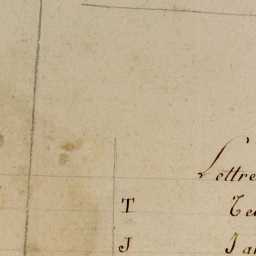 Lottre
T Te
J Ja